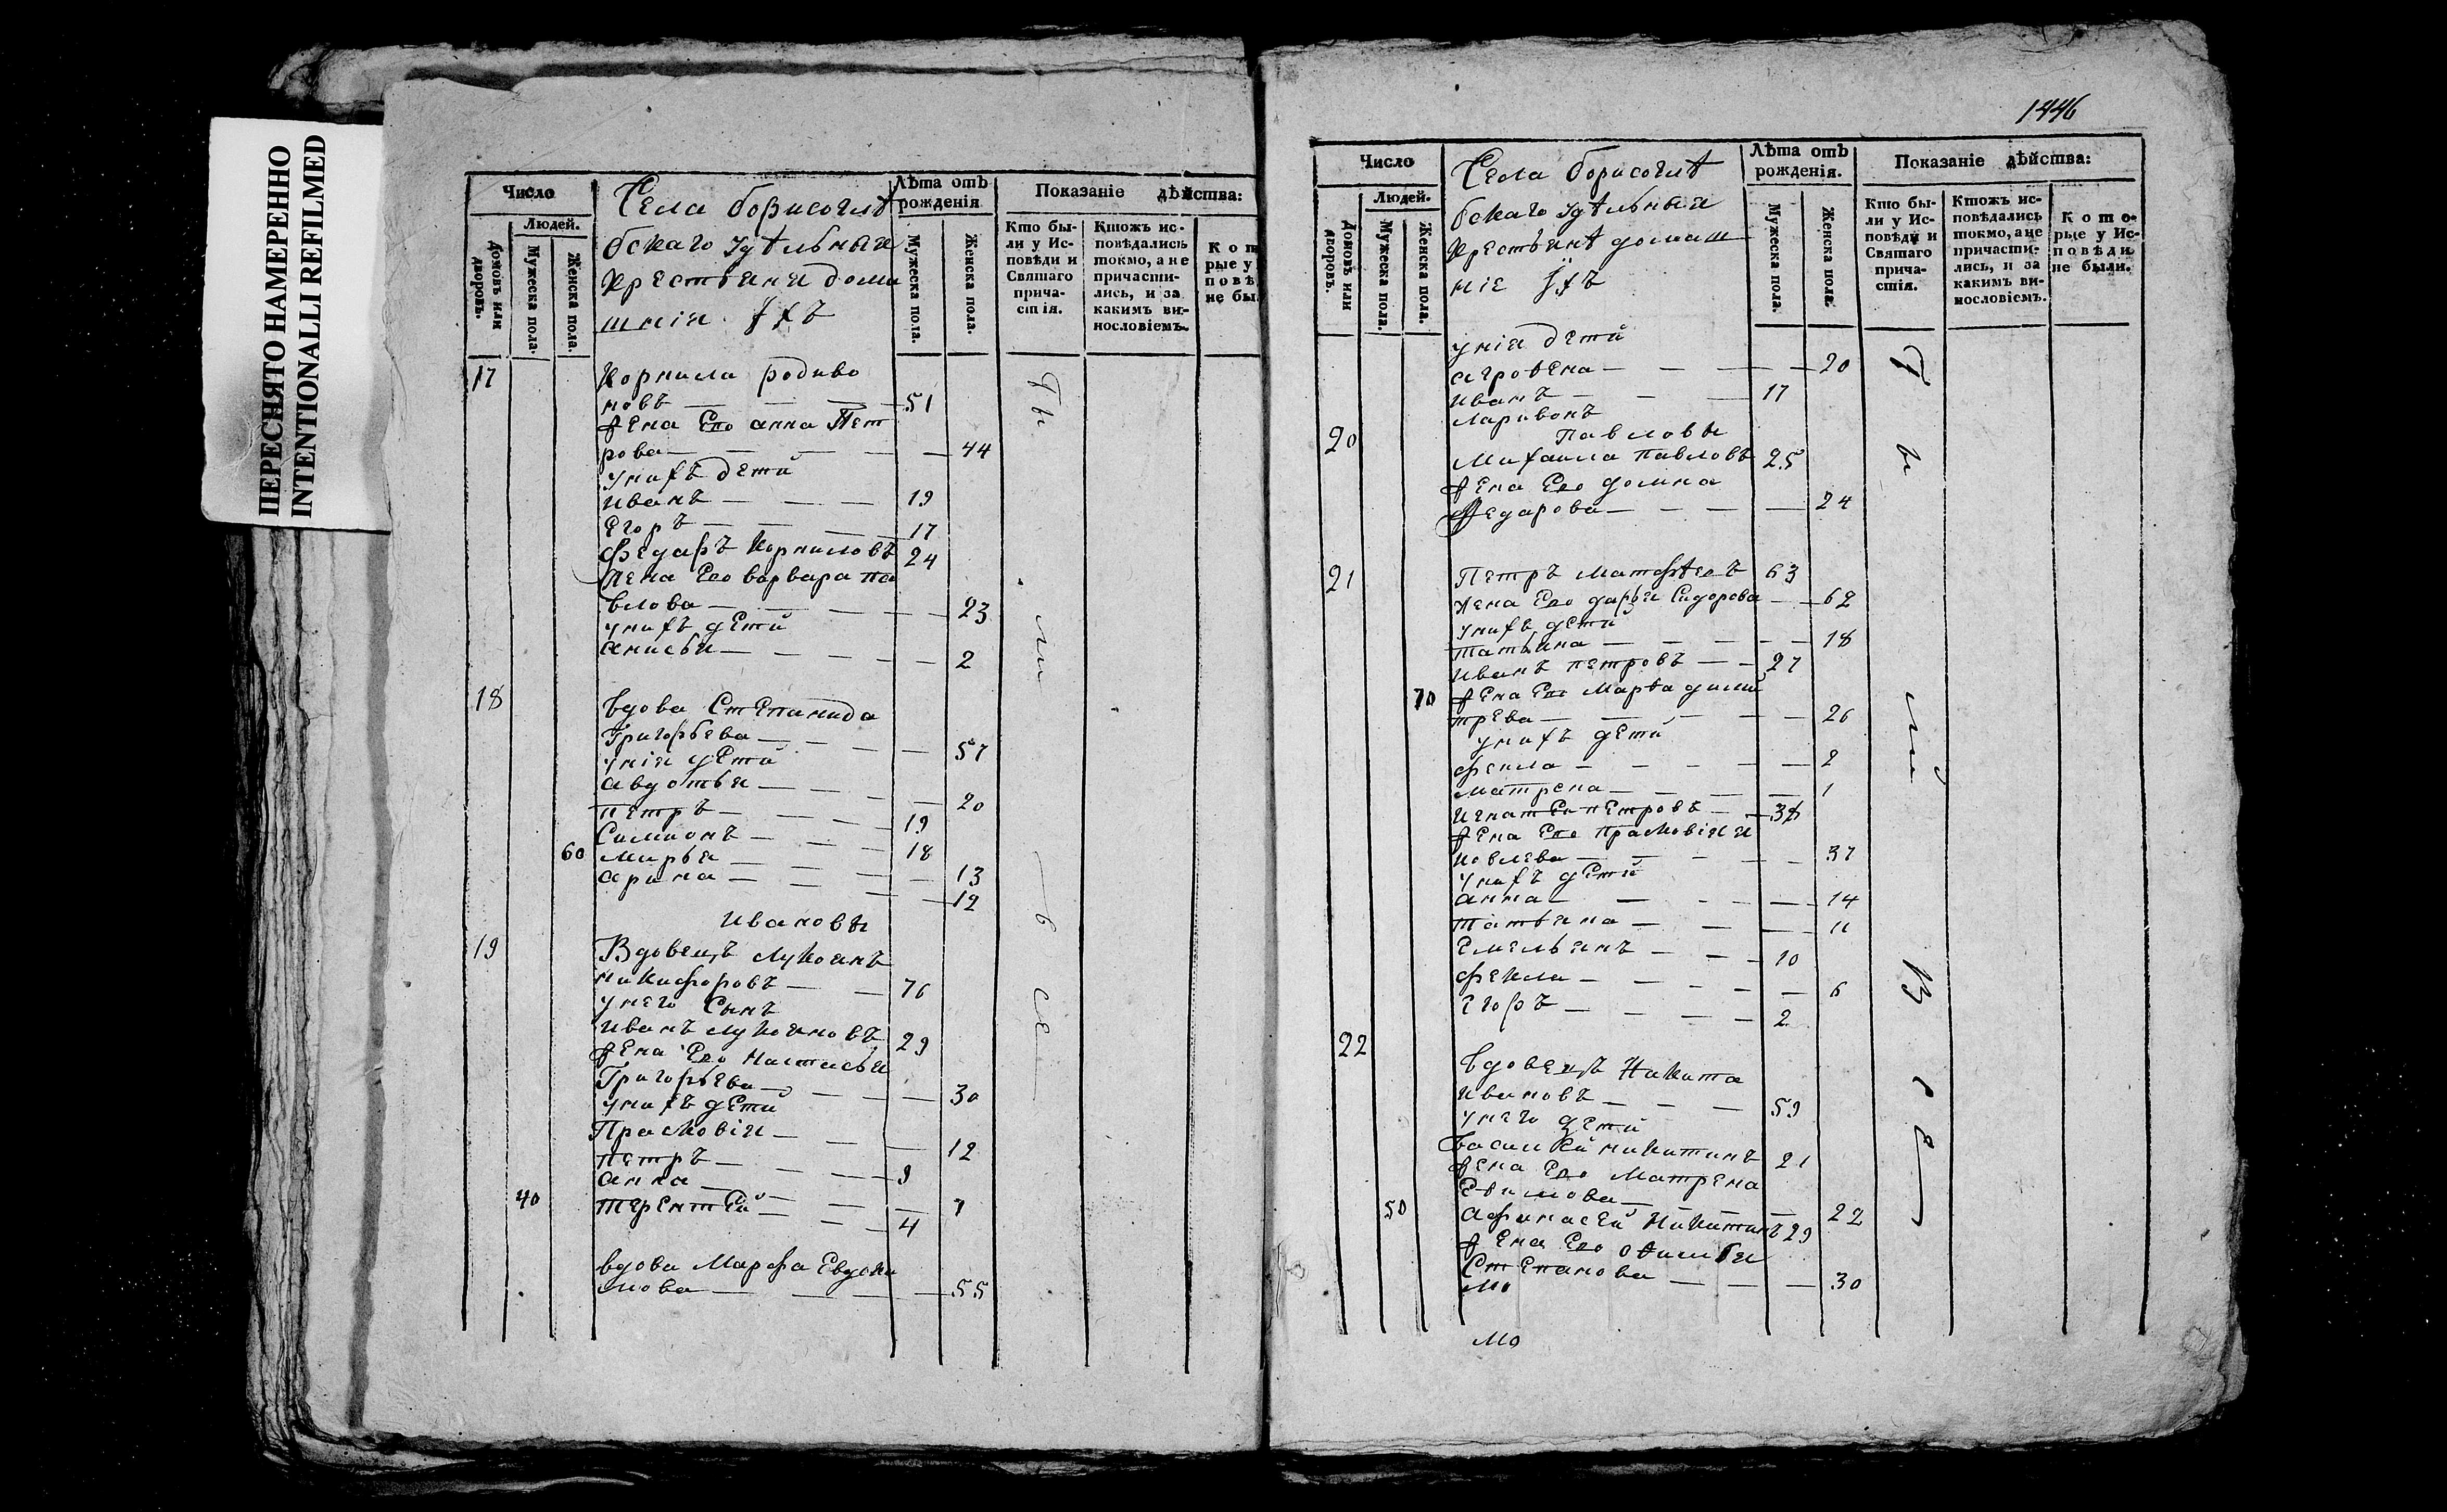 ПЕРЕСНЯТО НАМЕРЕННО
INTENTIONALLI REFILMED
Число
Людей.
Домовъ или дворовъ.
Мужеска пола.
Женска пола.
Села Борисоглѣ
бскаго удѣльныя
крестьяня дома
шнія ихъ
Лѣта отъ рожденія
Мужеска пола.
Женска пола.
Показаніе дѣйства:
Кто бы-
ли у Ис-
повѣди и
Святаго
прича-
стія.
Ктожъ ис-
повѣдались
токмо, а не
причасти-
лись, и за
какимъ ви-
нословіемъ.
Кот
рые у
повѣ
не бы
17 Корнила родиво
новъ — — — 51
жена Его анна Пет
рова — — — — 44
унихъ дети
иванъ — — — 19
Егоръ — — — 17
Федаръ Корниловъ 24
жена Его варвара па
влова — — — — 23
унихъ дети
анисья — — — — 2
18 вдова Степанида
Григорьева — — — — 57
унія дети
авдотья — — — — 20
петръ — — — 19
Симионъ — — — 18
60 марья — — — — 13
арина — — — — 12
ивановы
19 Вдовецъ лукоянъ
никифоровъ — — 76
унего Сынъ
иванъ лукояновъ 29
жена Его настасья
Григорьева — — — — 30
унихъ дети
Прасковія — — — 12
петръ — — — 9
анна — — — — 7
40 терентей — — — 4
вдова Марфа Евдоки
мова — — — — 55
1446
Число
Людей.
Домовъ или дворовъ.
Мужеска пола.
Женска пола.
Села Борисоглѣ
бскаго удѣльныя
крестьянѣ домаш
ніе ихъ
Лѣта отъ рожденія.
Мужеска пола.
Женска пола.
Показаніе дѣйства:
Кто бы-
ли у Ис-
повѣди и
Святаго
прича-
стія.
Ктожъ ис-
повѣдались
токмо, а не
причасти-
лись, и за
какимъ ви-
нословіемъ.
Кото-
рые у Ис-
повѣди
не были.
унія дети
агроѳена — — — — 20
иванъ — — — 17
ларивонъ
павловы
20 Михаила павловъ 25
жена Его домна
Федарова — — — — 24
21 Петръ матфѣевъ 63
жена Его дарья Сидорова — — 62
унихъ дети
татьяна — — — — 18
иванъ петровъ — — 27
70 жена Его Марѳа дими
трева — — — — 26
унихъ дети
фекла — — — — 2
матрена — — — — 1
игнатеи петровъ — 38
жена Его прасковія я
ковлева — — — — 37
унихъ дети
анна — — — — 14
татьяна — — — 11
Емельянъ — — — 10
фекла — — — — 6
Егоръ — — — 2
22 вдовецъ Никита
ивановъ — — — 59
унего дети
василей никитинъ 21
жена Его Матрена
Евимова — — — 22
50 афанасей Никитинъ 29
жена Его
Степанова — — — 30
мо
мо